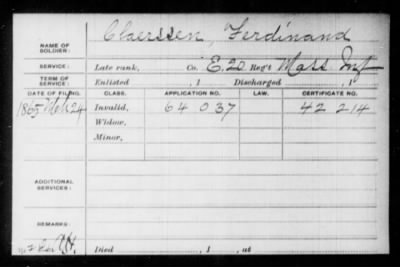 NAME OF SOLDIER: Claerssen, Ferdinand
SERVICE: Late rank, Co. E. 20 Reg't Mass Inf
TERM OF SERVICE: Enlisted , 1 Discharged , 1
DATE OF FILING. CLASS. APPLICATION NO. LAW. CERTIFICATE NO.
1865 Mch 24 Invalid, 64 037 42 214
Widow,
Minor,
ADDITIONAL SERVICES:
REMARKS:
Died , 1 , at